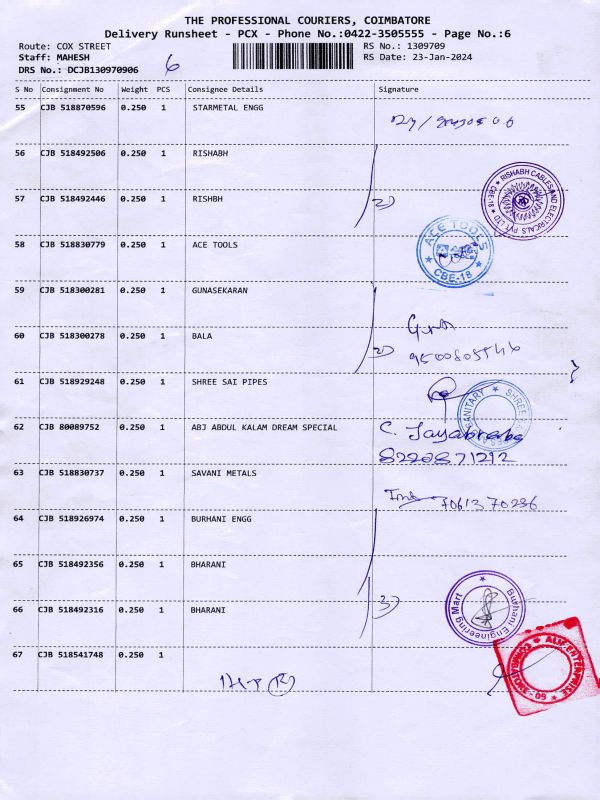 THE PROFESSIONAL COURIERS, COIMBATORE
Delivery Runsheet - PCX - Phone No.:0422-3505555 - Page No.:6
Route: COX STREET RS No.: 1309709
Staff: MAHESH RS Date: 23-Jan-2024
DRS No.: DCJB130970906 6
S No Consignment No Weight PCS Consignee Details Signature
55 CJB 518870596 0.250 1 STARMETAL ENGG
56 CJB 518492506 0.250 1 RISHABH
57 CJB 518492446 0.250 1 RISHBH
RISHABH CABLES AND ELECTRICALS PVT LTD
CBE-18
58 CJB 518830779 0.250 1 ACE TOOLS
ACE TOOLS
CBE-18
59 CJB 518300281 0.250 1 GUNASEKARAN
60 CJB 518300278 0.250 1 BALA
61 CJB 518929248 0.250 1 SHREE SAI PIPES
SANITARY SHREE
62 CJB 80089752 0.250 1 ABJ ABDUL KALAM DREAM SPECIAL
C. Jayabraba
8220871212
63 CJB 518830737 0.250 1 SAVANI METALS
7061370286
64 CJB 518926974 0.250 1 BURHANI ENGG
65 CJB 518492356 0.250 1 BHARANI
66 CJB 518492316 0.250 1 BHARANI
Burhani Engineering Mart
67 CJB 518541748 0.250 1
ALIF ENTERPRISE